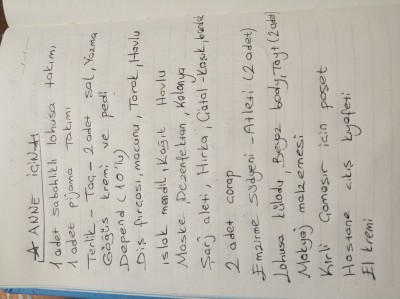 ★ ANNE İÇİN
1 adet sabahlıklı lohusa takımı,
1 adet pijama takımı
Terlik - Taç - 2 adet şal, Yazma
Göğüs kremi ve pedi
Depend (10'lu)
Diş fırçası, macunu, Tarak, Havlu
Islak mendil, Kağıt Havlu
Maske, Dezenfektan, Kolonya
Şarj aleti, Hırka, Çatal-Kaşık, bardak
2 adet çorap
Emzirme sütyeni - Atleti (2 adet)
Lohusa külodu, Beyaz body, Tayt (2 adet)
Makyaj malzemesi
Kirli Çamaşır için poşet
Hastane çıkış kıyafeti
El kremi